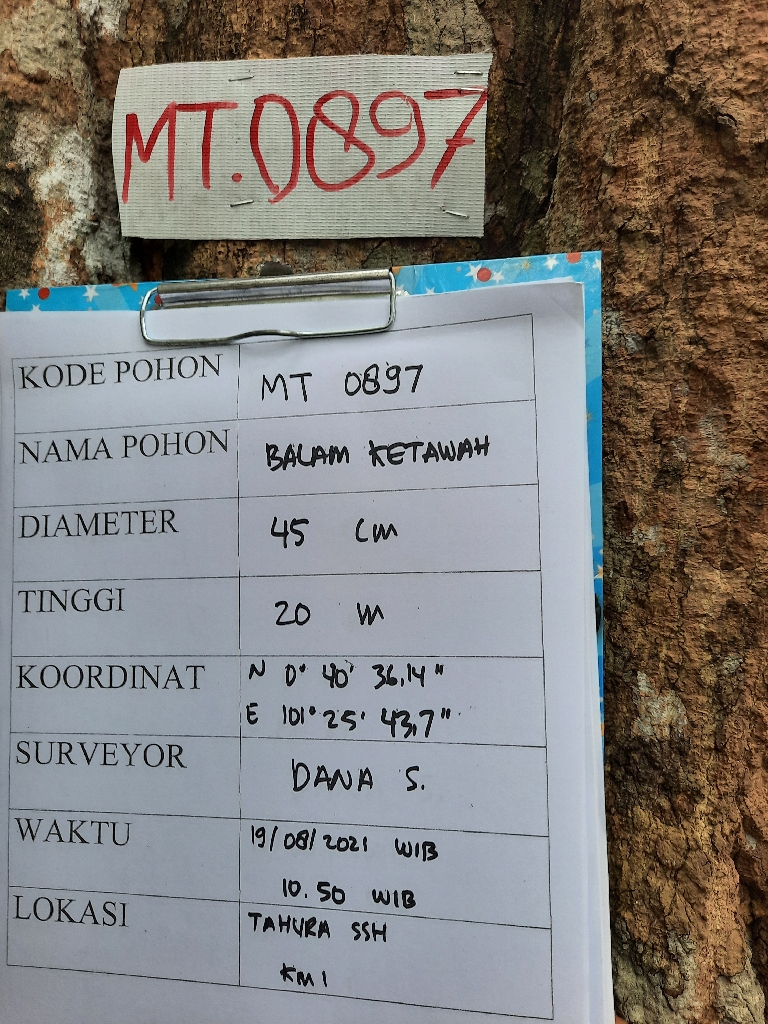 MT.0897
KODE POHON MT 0897
NAMA POHON BALAM KETAWAH
DIAMETER 45 cm
TINGGI 20 m
KOORDINAT N 0° 40' 36,14"
E 101° 25' 43,7"
SURVEYOR DANA S.
WAKTU 19/08/2021 WIB
10.50 WIB
LOKASI TAHURA SSH
KM 1